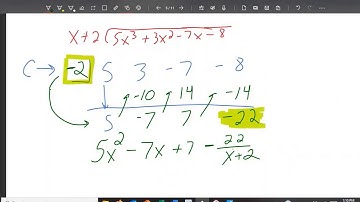 x+2 5x³+3x²-7x-8
C→ -2 5 3 -7 -8
-10 14 -14
5 -7 7 -22
5x²-7x+7-22/x+2